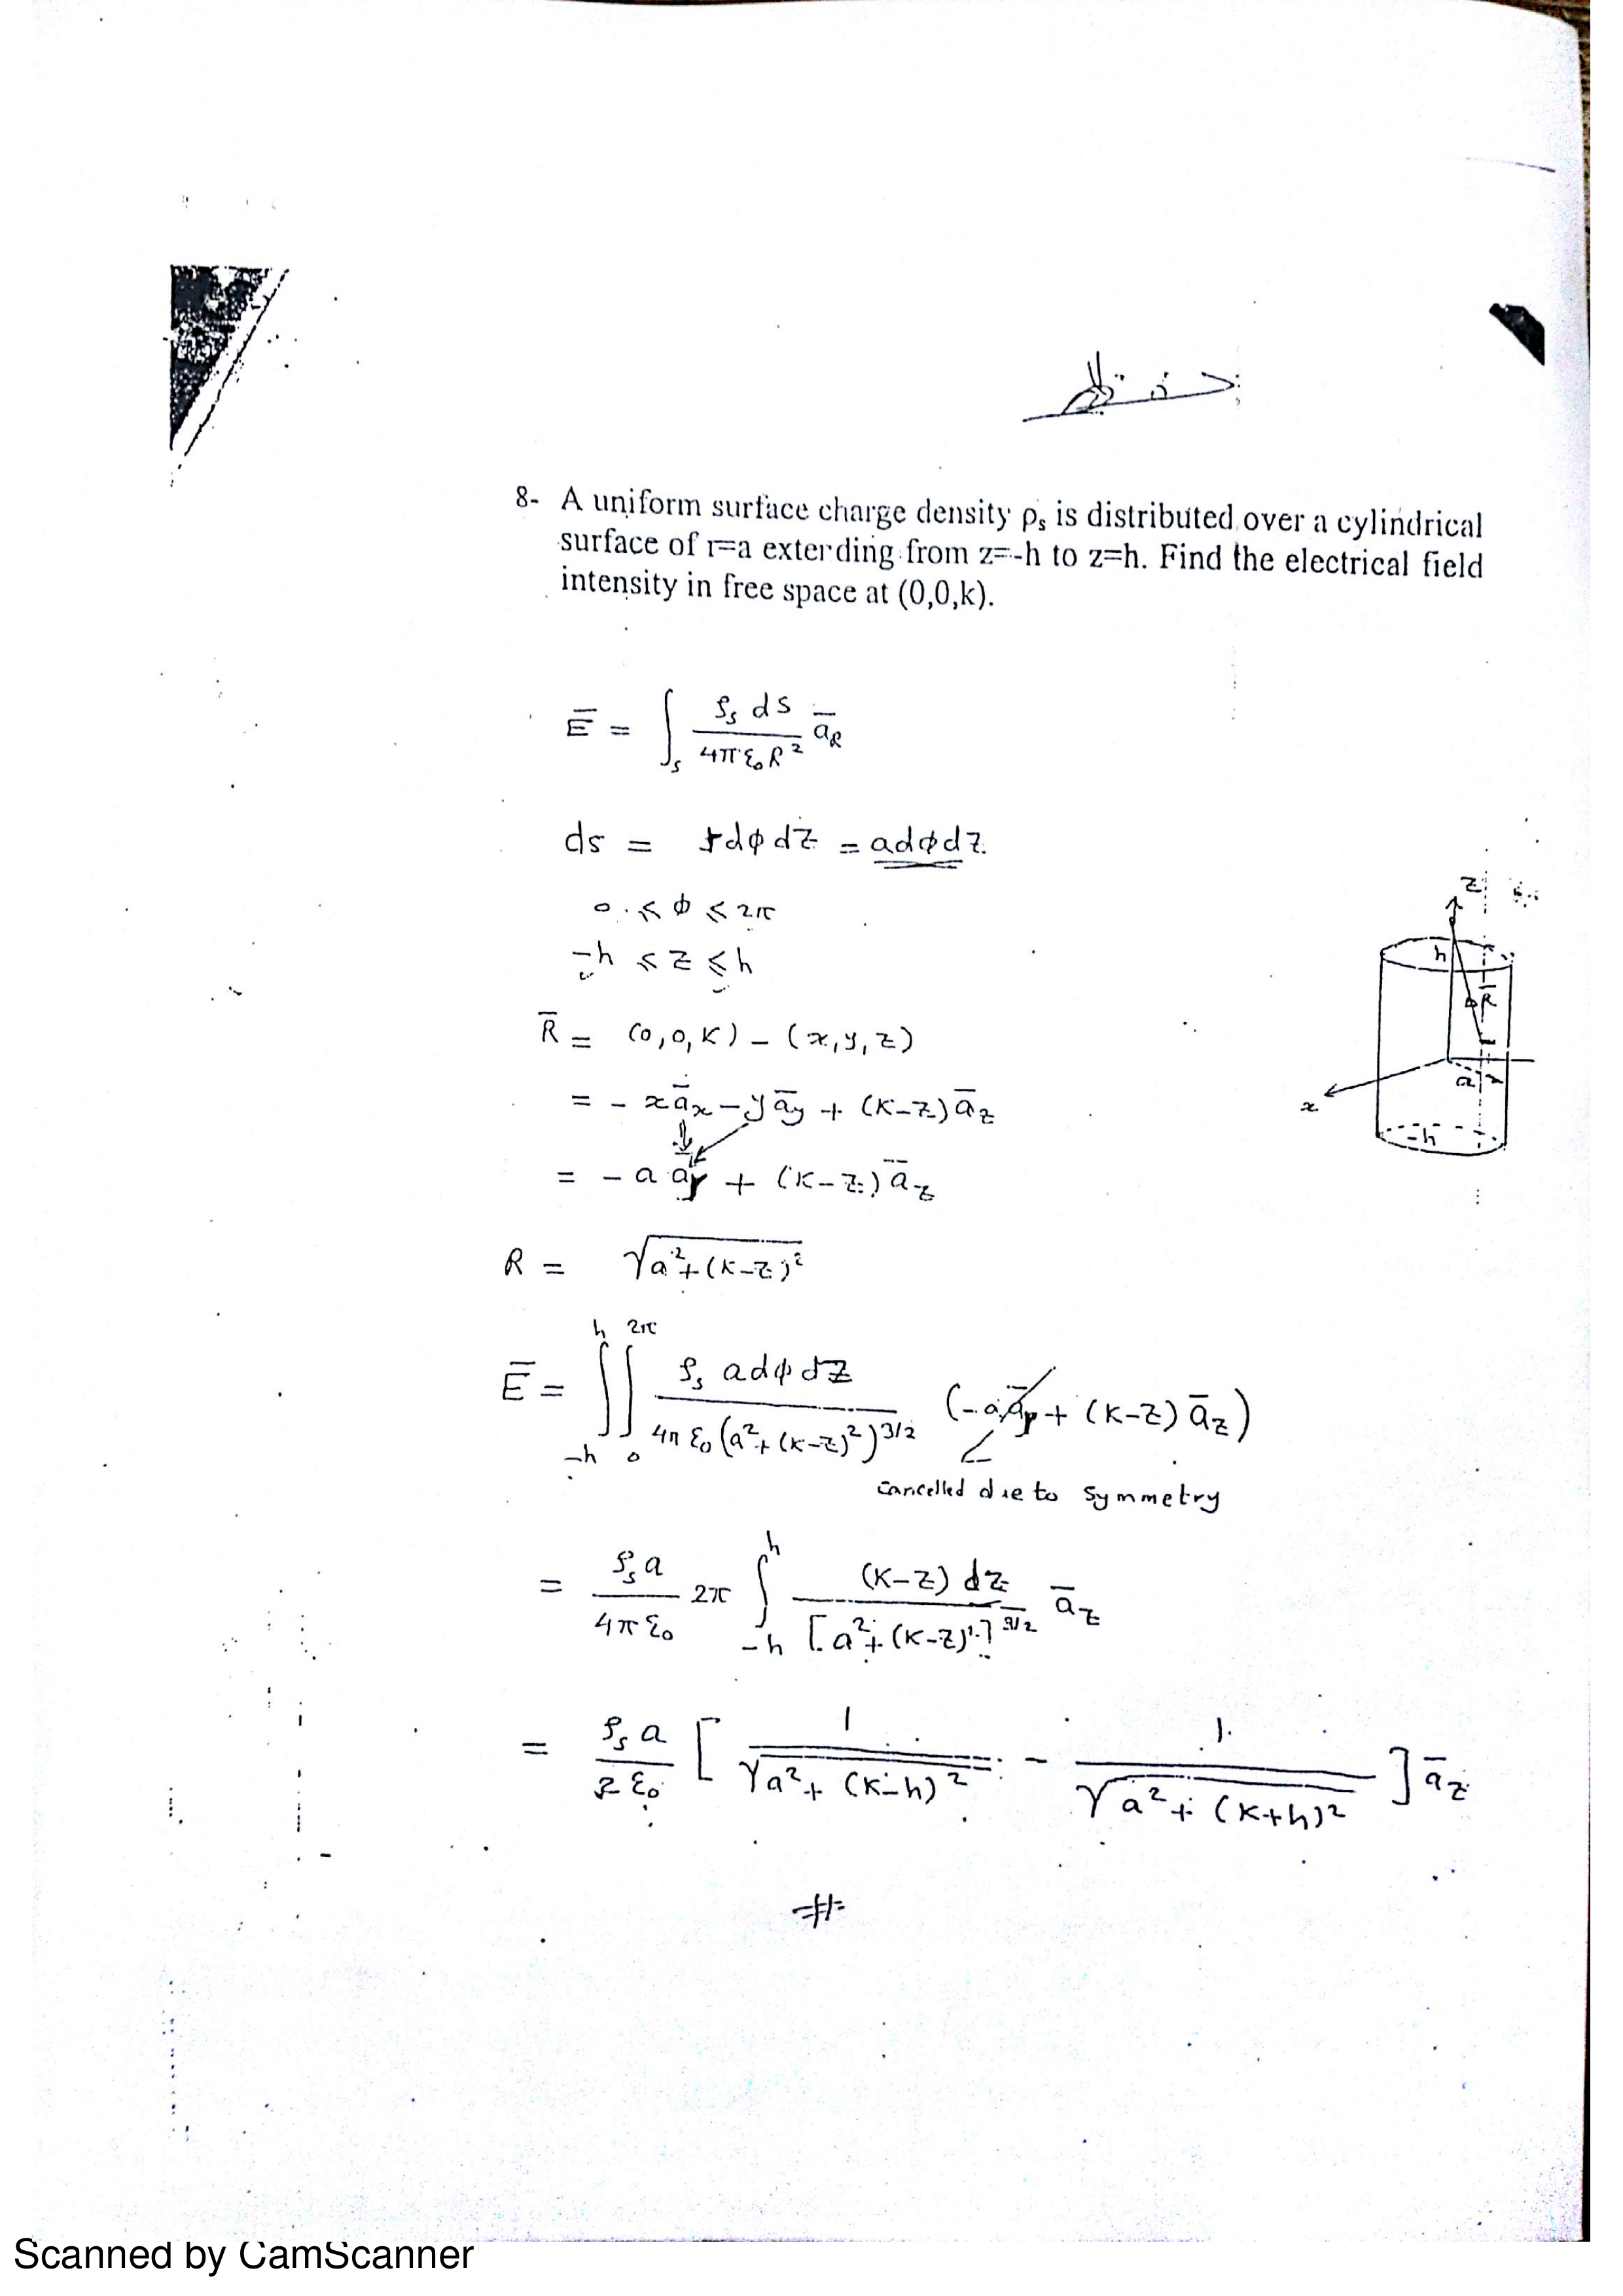 8- A uniform surface charge density ρs is distributed over a cylindrical
surface of r=a exterding from z=-h to z=h. Find the electrical field
intensity in free space at (0,0,k).
E̅ = ∫s ρs ds / 4πε₀R² a̅R
ds = rdφdz = adφdz
0 ≤ φ ≤ 2π
-h ≤ z ≤ h
R̅ = (0,0,K) - (x,y,z)
= - x a̅x - y a̅y + (K-z) a̅z
= - a a̅r + (K-z) a̅z
R = √(a²+(K-z)²)
E̅ = ∫-h^h ∫0^2π ρs adφdz / 4πε₀(a²+(K-z)²)^3/2 (-a a̅r + (K-z) a̅z)
cancelled due to symmetry
= ρs a / 4πε₀ 2π ∫-h^h (K-z) dz / [a²+(K-z)²]^3/2 a̅z
= ρs a / 2ε₀ [ 1 / √(a²+(K-h)²) - 1 / √(a²+(K+h)²) ] a̅z
#
z
h
R̅
a
x
-h
Scanned by CamScanner